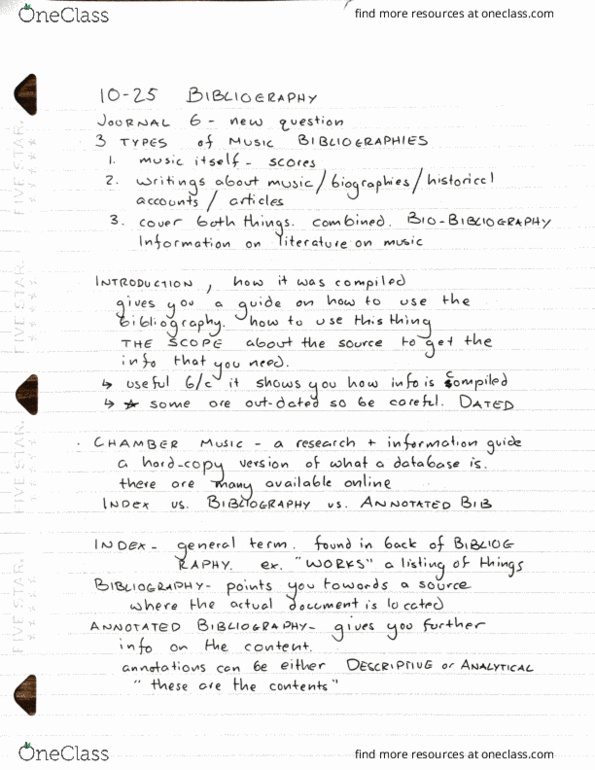 OneClass
find more resources at oneclass.com
10-25 BIBLIOGRAPHY
JOURNAL 6 - new question
3 TYPES of MUSIC BIBLIOGRAPHIES
1. music itself - scores
2. writings about music/biographies/historical
accounts/articles
3. cover both things. combined. BIO-BIBLIOGRAPHY
Information on literature on music
INTRODUCTION, how it was compiled
gives you a guide on how to use the
bibliography. how to use this thing
THE SCOPE about the source to get the
info that you need.
↳ useful b/c it shows you how info is compiled
↳ ★ some are out-dated so be careful. DATED
· CHAMBER MUSIC - a research + information guide
a hard-copy version of what a database is.
there are many available online
INDEX vs. BIBLIOGRAPHY vs. ANNOTATED BIB
INDEX - general term. found in back of BIBLIOG
RAPHY. ex. "WORKS" a listing of things
BIBLIOGRAPHY - points you towards a source
where the actual document is located
ANNOTATED BIBLIOGRAPHY - gives you further
info on the content.
annotations can be either DESCRIPTIVE or ANALYTICAL
"these are the contents"
FIVE STAR.
FIVE STAR.
FIVE STAR.
FIVE STAR.
OneClass
find more resources at oneclass.com